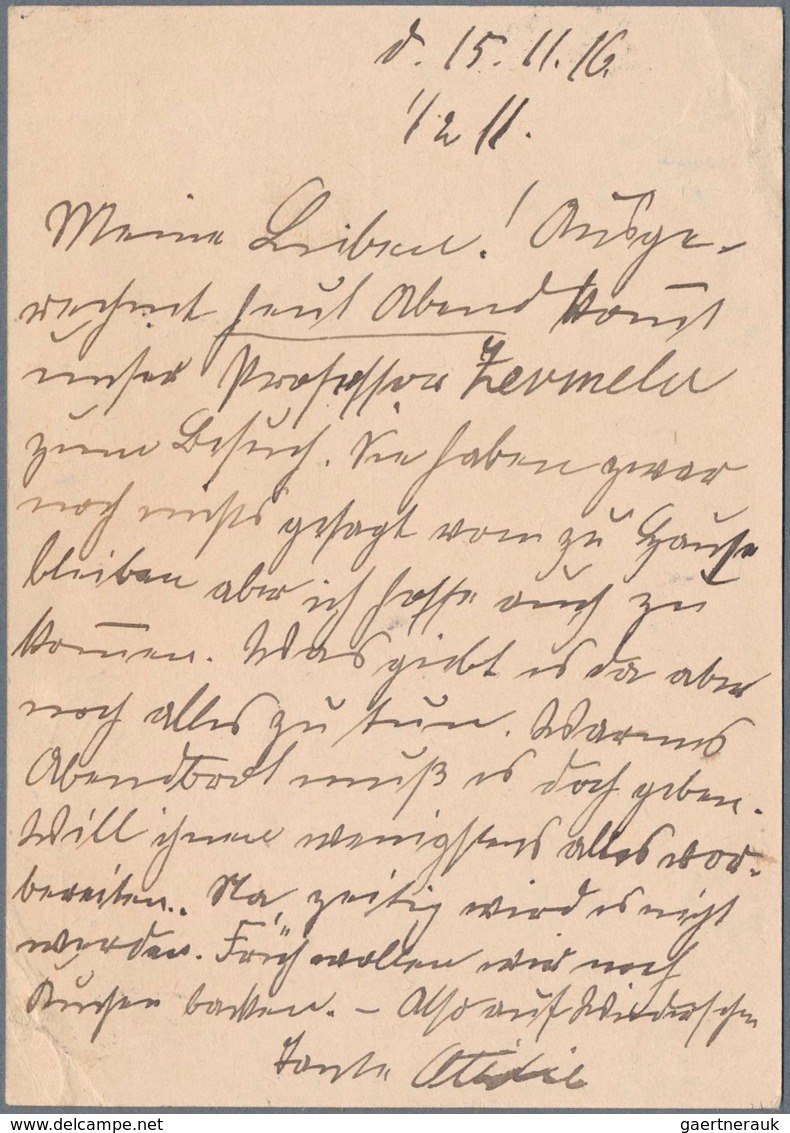 d. 15. 11. 16.
1/2 11.
Meine Lieben! Ausge-
rechnet heut Abend kom̅t
unser Professor Zermelo
zum Besuch. Sie haben zwar
noch nichts gesagt vom zu Hause
bleiben aber ich hoffe auch zu
kom̅en. Was giebt es da aber
noch alles zu tun. Warmes
Abendbrot muß es doch geben.
Will ihnen wenigstens alles vor-
bereiten. Na, zeitig wird es nicht
werden. Früh wollen wir noch
Kuchen backen. – Also auf Wiedersehn
Tante
gaertnerauk